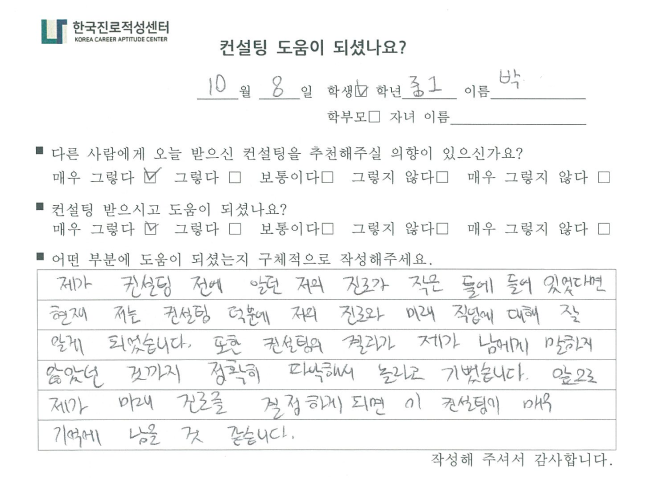 한국진로적성센터
KOREA CAREER APTITUDE CENTER
컨설팅 도움이 되셨나요?
10 월 8 일 학생☑ 학년 중1 이름 박
학부모□ 자녀 이름
■ 다른 사람에게 오늘 받으신 컨설팅을 추천해주실 의향이 있으신가요?
매우 그렇다 ☑ 그렇다 □ 보통이다□ 그렇지 않다□ 매우 그렇지 않다 □
■ 컨설팅 받으시고 도움이 되셨나요?
매우 그렇다 ☑ 그렇다 □ 보통이다□ 그렇지 않다□ 매우 그렇지 않다 □
■ 어떤 부분에 도움이 되셨는지 구체적으로 작성해주세요.
제가 컨설팅 전에 알던 저의 진로가 작은 틀에 들어 있었다면
현재 저는 컨설팅 덕분에 저의 진로와 미래 직업에 대해 잘
알게 되었습니다. 또한 컨설팅의 결과가 제가 남에게 말하지
않았던 것까지 정확히 파악해서 놀라고 기뻤습니다. 앞으로
제가 미래 진로를 결정하게 되면 이 컨설팅이 매우
기억에 남을 것 같습니다.
작성해 주셔서 감사합니다.